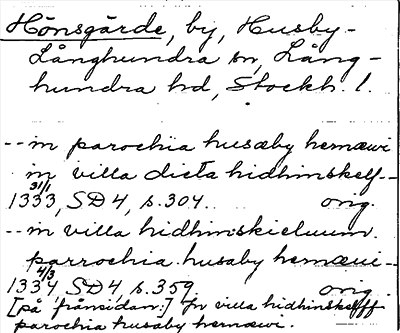 Hönsgärde, by, Husby-
Långhundra sn, Lång-
hundra hd, Stockh. l.
-- in parochia husæby hemæwi
in villa dicta hidhinskelf--
31/1
1333, SD 4, s. 304. orig.
-- in villa hidhinskieluum.
parrochia husaby hemæui--
4/3
1334 SD 4, s. 359. orig.
[på framsidan:] In villa hidhinskelff
parochia husaby hemæwi.